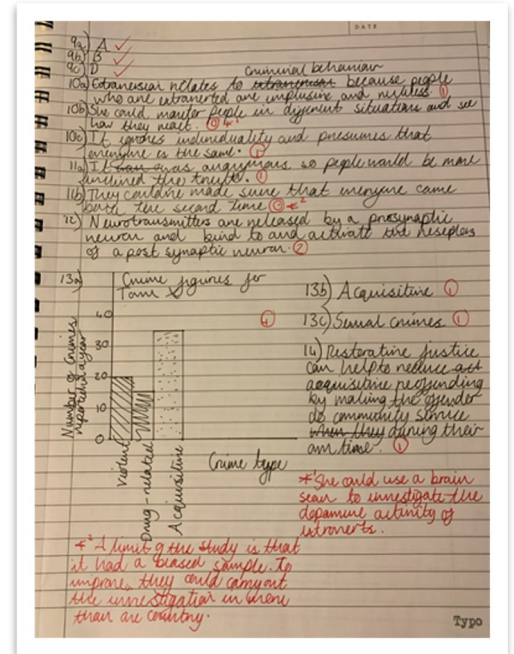 DATE
9a) A ✓
9b) B ✓
9c) D ✓
criminal behaviour
10a) Extraversion relates to because people
who are extraverted are impulsive and reckless. ①
10b) She could monitor people in different situations and see
how they react. ⓪ *¹
10c) It ignores individuality and presumes that
everyone is the same. ①
11a) It was anonymous so people would be more
inclined the truth. ①
11b) They could've made sure that everyone came
both the second time ⓪ *²
12) Neurotransmitters are released by a presynaptic
neuron and bind to and activate the
of a post synaptic neuron. ②
13a) Crime figures for
Town X
Number of crimes
reported a year
40
30
20
10
0
Violent
Drug-related
Acquisitive
Crime type
④
13b) Acquisitive ①
13c) Sexual crimes ①
14) Restorative justice
can help to reduce act
acquisitive reoffending
by making the offender
do community service
when they during their
own time. ①
*¹ She could use a brain
scan to investigate the
dopamine activity of
introverts.
*² A limit of the study is that
it had a biased sample. To
improve, they could carry out
the investigation in more
than one country.
Typo